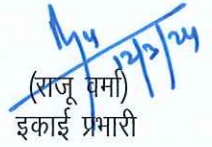 12/3/24
(राजू वर्मा)
इकाई प्रभारी